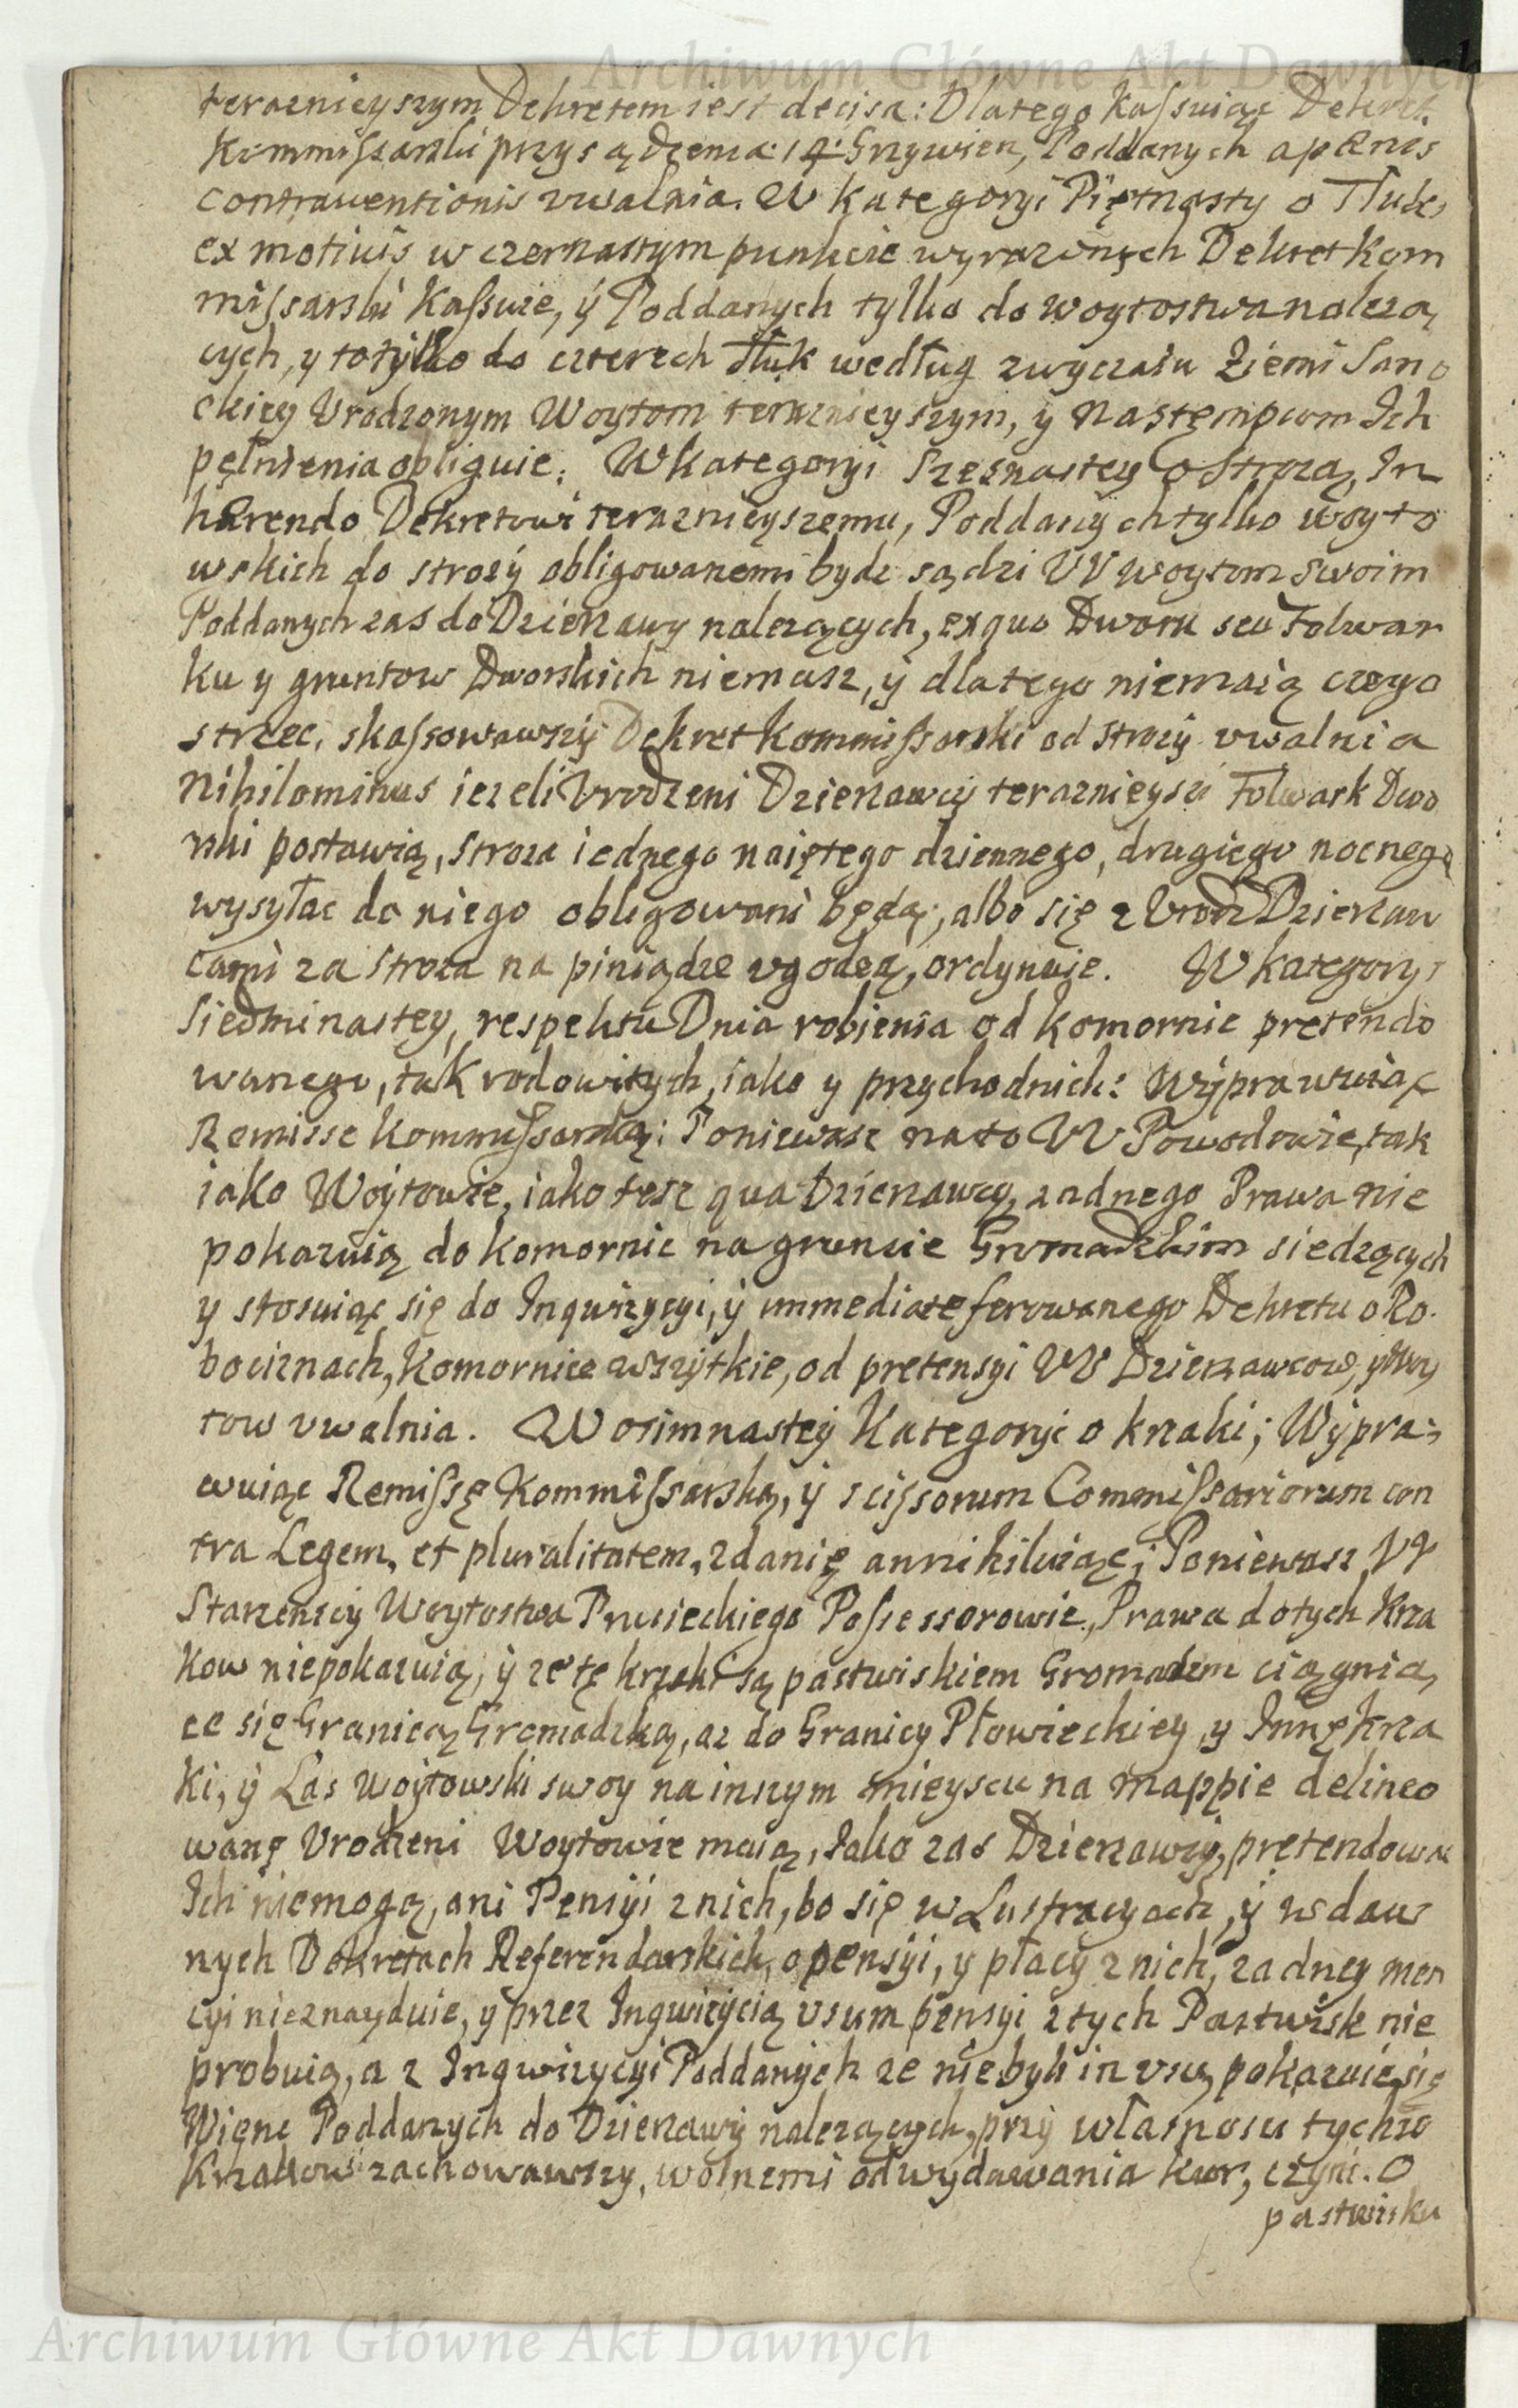 Archiwum Główne Akt Dawnych
teraznieyszym Dekretem iest decisa: Dlatego kassuiąc Dekret
Kommissarski przysądzenia 14 Grzywien, Poddanych a pænis
contraventionis uwalnia. W kategoryi Piętnasty o Tłuki
ex motivis w czternastym punkcie wyrazonych Dekret Kom
missarski kassuie, ÿ Poddanych tylko do woytostwa nalezą
cych, y to tylko do czterech tłuk według zwyczaiu Ziemi Sano
ckiey Vrodzonym Woytom teraznieyszym, y następcom Ich
pełnienia obliguie. W kategoryi Szesnastey o Strozą, In
hærendo Dekretowi teraznieyszemu, Poddanych tylko woyto
wskich do strozÿ obligowanemi bydz sądzi VV woytom swoim
Poddanych zas do Dzierzawy nalezących, ex quo Dworu seu Folwar
ku y gruntow Dworskich niemasz, ÿ dlatego niemaią czego
strzec, skassowawszÿ Dekret Kommissarski od strozÿ uwalnia
Nihilominus iezeli Vrodzeni Dzierzawcÿ teraznieysi Folwark Dwo
rski postawią, stroza iednego naiętego dziennego, drugiego nocnego
wysyłac do niego obligowani będą, albo się z Vrodz Dzierzaw
cami za stroza na piniądze ugodzą, ordynuie. W kategoryi
Siedminastey, respektu Dnia robienia od komornic pretendo
wanego, tak rodowitych, iako y przychodnich: Wÿprawuiąc
Remisse Kommissarską: Poniewasz na to VV Powodowie, tak
iako Woÿtowie, iako tesz qua Dzierzawcy, zadnego Prawa nie
pokazuią do komornic na gruncie Gromadzkim siedzących
y stosuiąc się do Inquizycyi, ÿ immediate ferowanego Dekretu o Ro.
bociznach, Komornice wszÿtkie, od pretensyi VV Dzierzawcow, y Woÿ
tow uwalnia. W osimnasteÿ Kategoryi o krzaki; Wÿpra-
wuiąc Remissę Kommissarską, ÿ scissorum Commissariorum con
tra Legem, et pluralitatem, zdanię annihiluiąc; Poniewasz VV
Starzenscÿ Woytostwa Prusieckiego Possessorowie, Prawa do tych Krza
kow niepokazuią, ÿ ze tę krzaki są pastwiskiem Gromadzm ciągnią,
ce się Granicą Gromadzką, az do Granicy Płowieckiey, y Innę Krza
ki, ÿ Las Woÿtowski swoy na inszym mieyscu na mappie delineo
wanę Vrodzeni Woytowie maią, Iako zas Dzierzawcÿ, pretendowac
Ich niemogą, ani Pensÿi z nich, bo się w Lustracyach, ÿ w daw
nych Dekretach Referendarskich, o pensÿi, y płacÿ z nich, zadney men
cyi nieznayduie, y przez Inqwizÿcią usum pensyi z tych Pastwisk nie
probuią, a z Inqwizycyi Poddanÿch ze nie byli in usu, pokazuie się
Więnc Poddanych do Dzierzawÿ nalezących, przÿ własnosci tychze
Krzakow zachowawszy, wolnemi od wydawania kur, czyni. O
pastwisku
Archiwum Główne Akt Dawnych